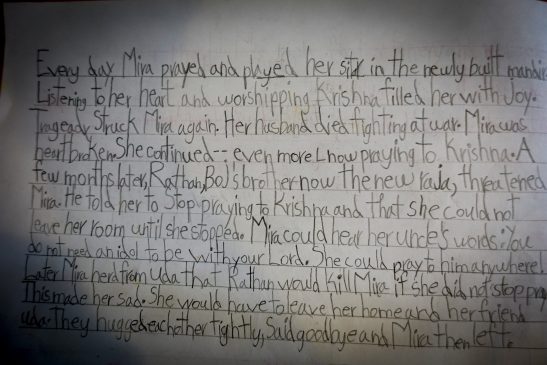 Every day Mira prayed and played her sitar in the newly built mandir.
Listening to her heart and worshipping Krishna filled her with Joy.
Tragedy Struck Mira again. Her husband died fighting at war. Mira was
heart broken. She continued-- even more now praying to Krishna. A
few months later, Rathan, Boj's brother now the new raja, threatened
Mira. He told her to stop praying to Krishna and that she could not
leave her room until she stopped. Mira could hear her uncle's words: You
do not need an idol to be with your Lord. She could pray to him anywhere!
Later Mira herd from Uda that Rathan would kill Mira if she did not stop pray
This made her sad. She would have to leave her home and her friend
uda. They hugged each other tightly, Said goodbye and Mira then left.